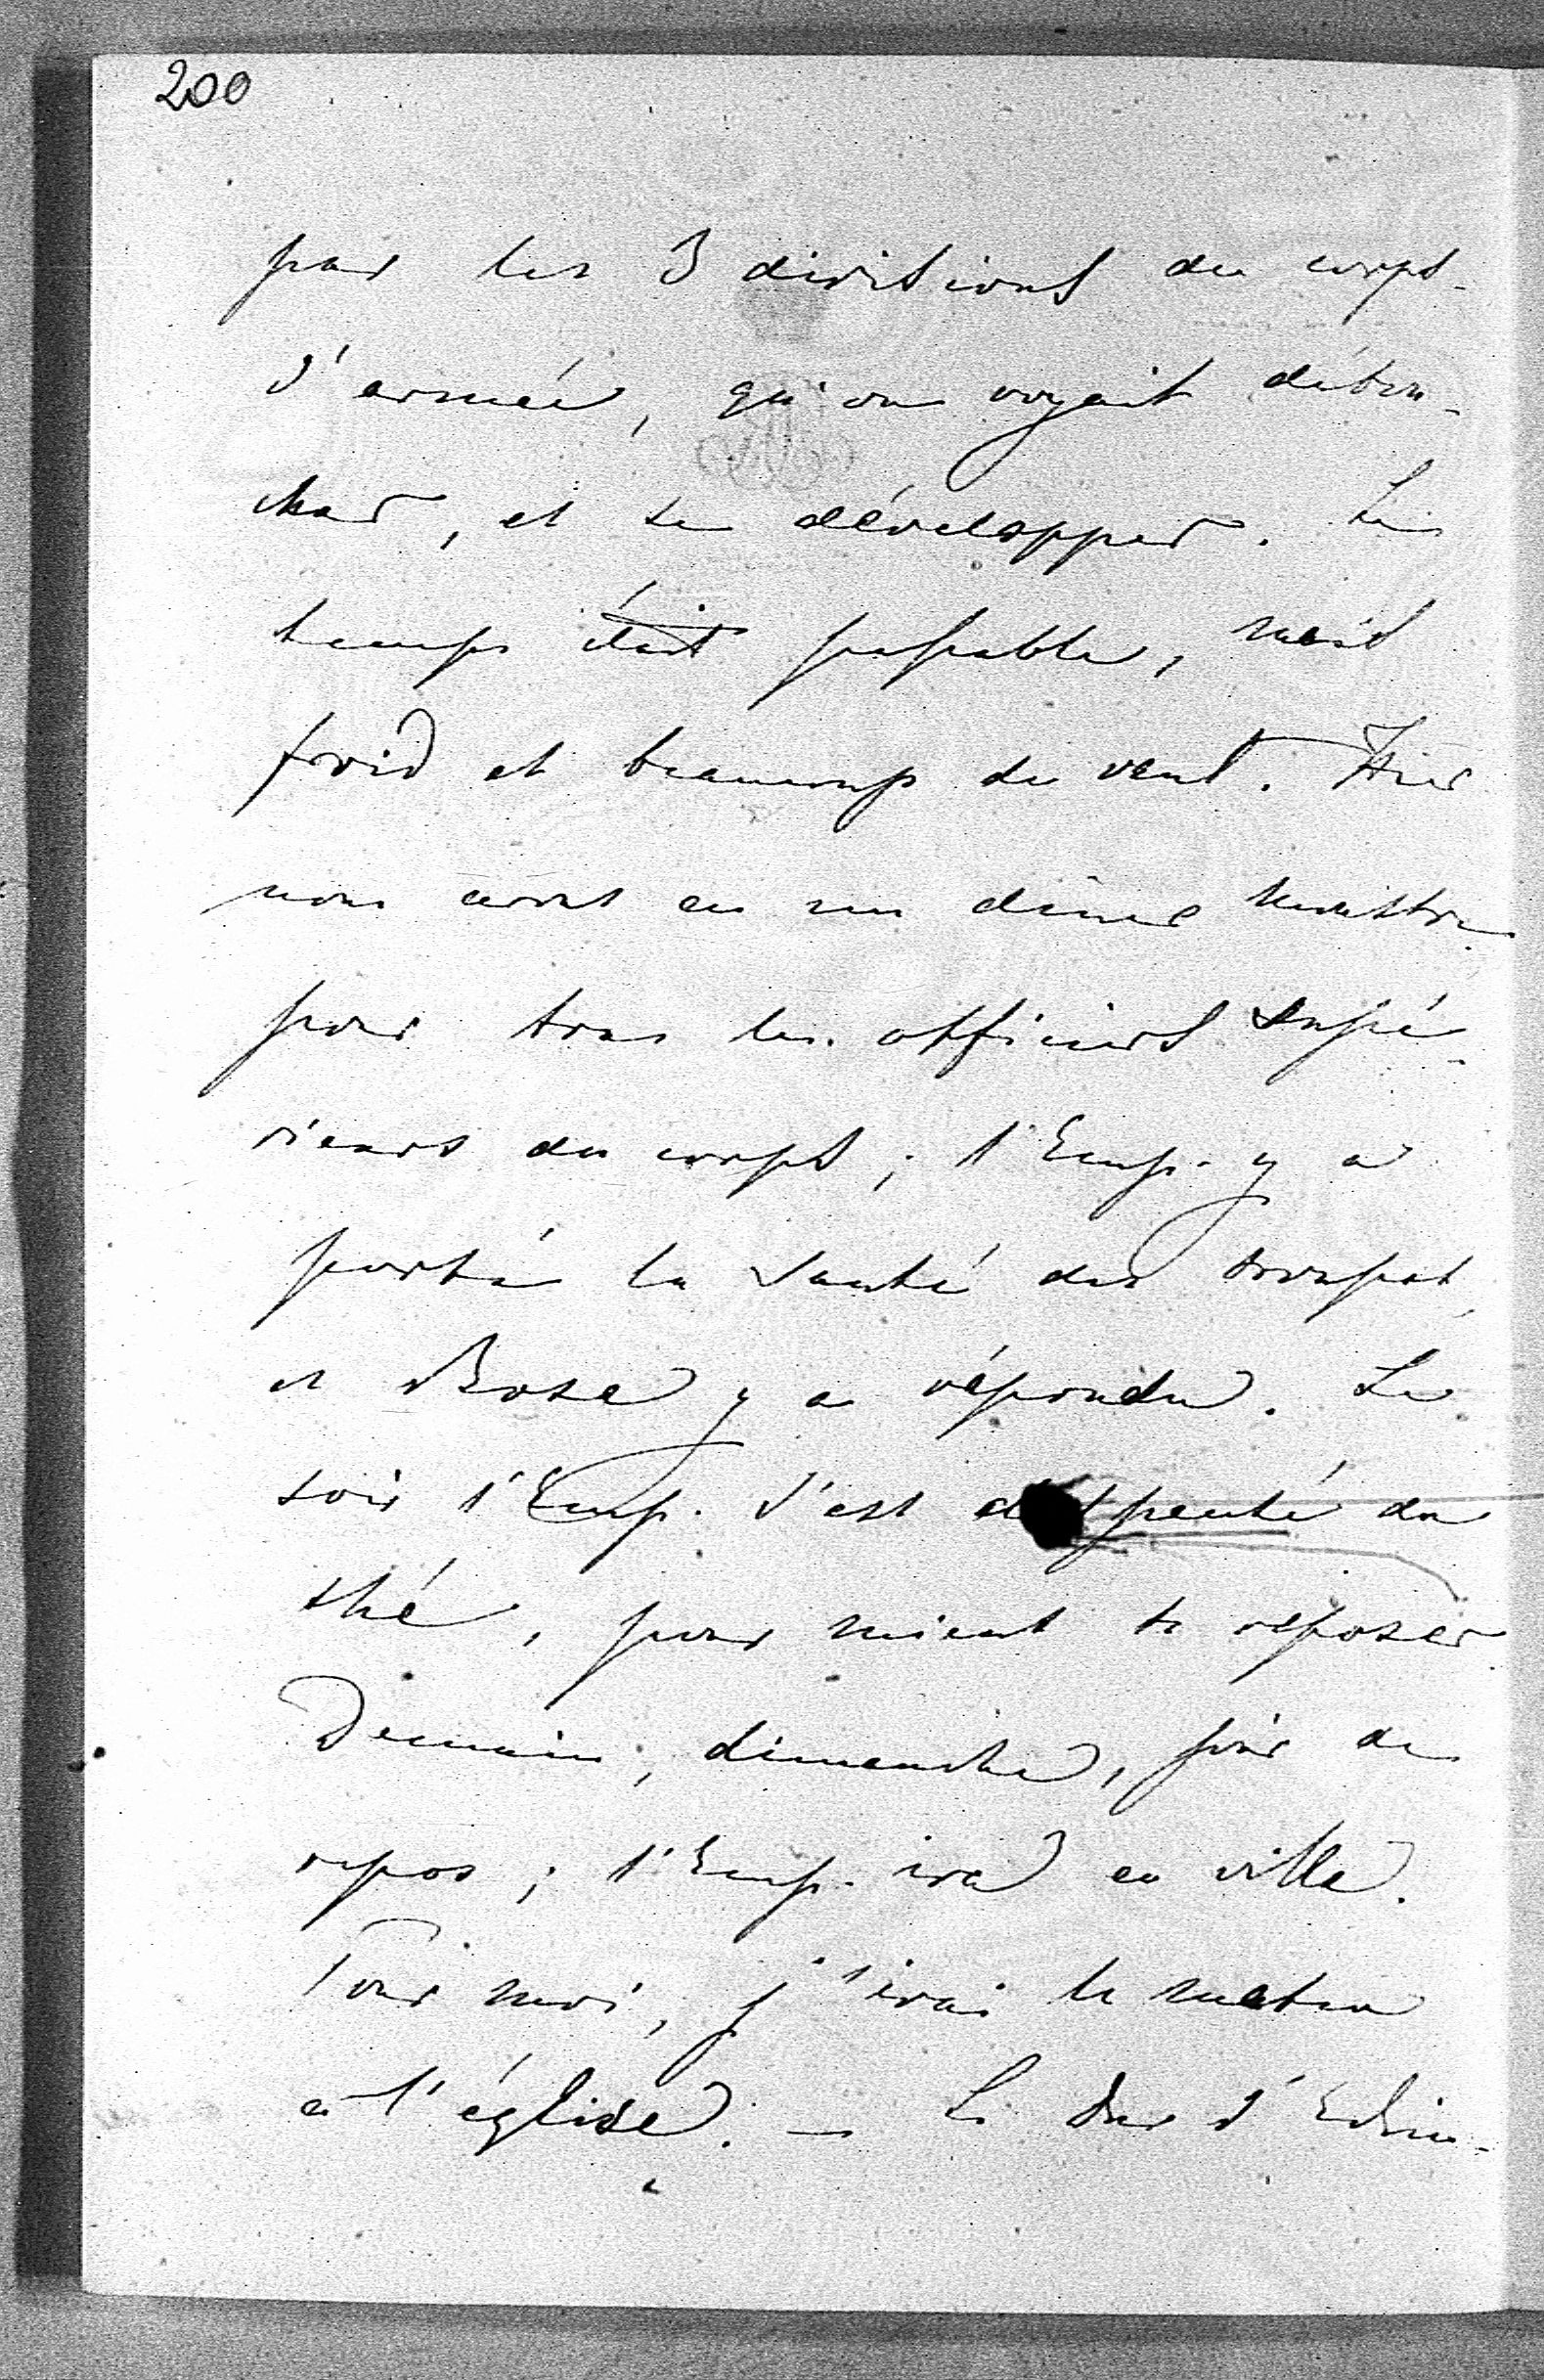 200
par les 3 divisions du corps
d'armée, qu'on voyait débou-
cher, et se développer. Le
temps était passable, mais
froid et beaucoup de vent. Hier
nous avons eu un dîner monstre
pour tous les officiers supé-
rieurs du corps; l'Emp. y a
porté la santé des troupes,
et Rose y a répondu. Le
soir l'Emp. s'est dispensé du
thé, pour mieux se reposer.
Demain, dimanche, jour de
repos; l'Emp. ira en ville.
Pour moi, j'irai le matin
à l'église. — Le Duc d'Edim-